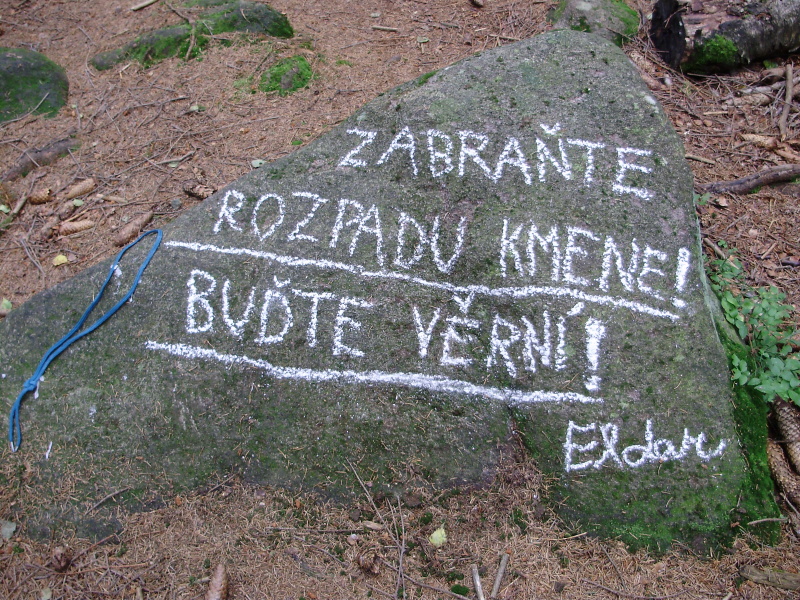 ZABRAŇTE
ROZPADU KMENE!
BUĎTE VĚRNÍ!
Eldar